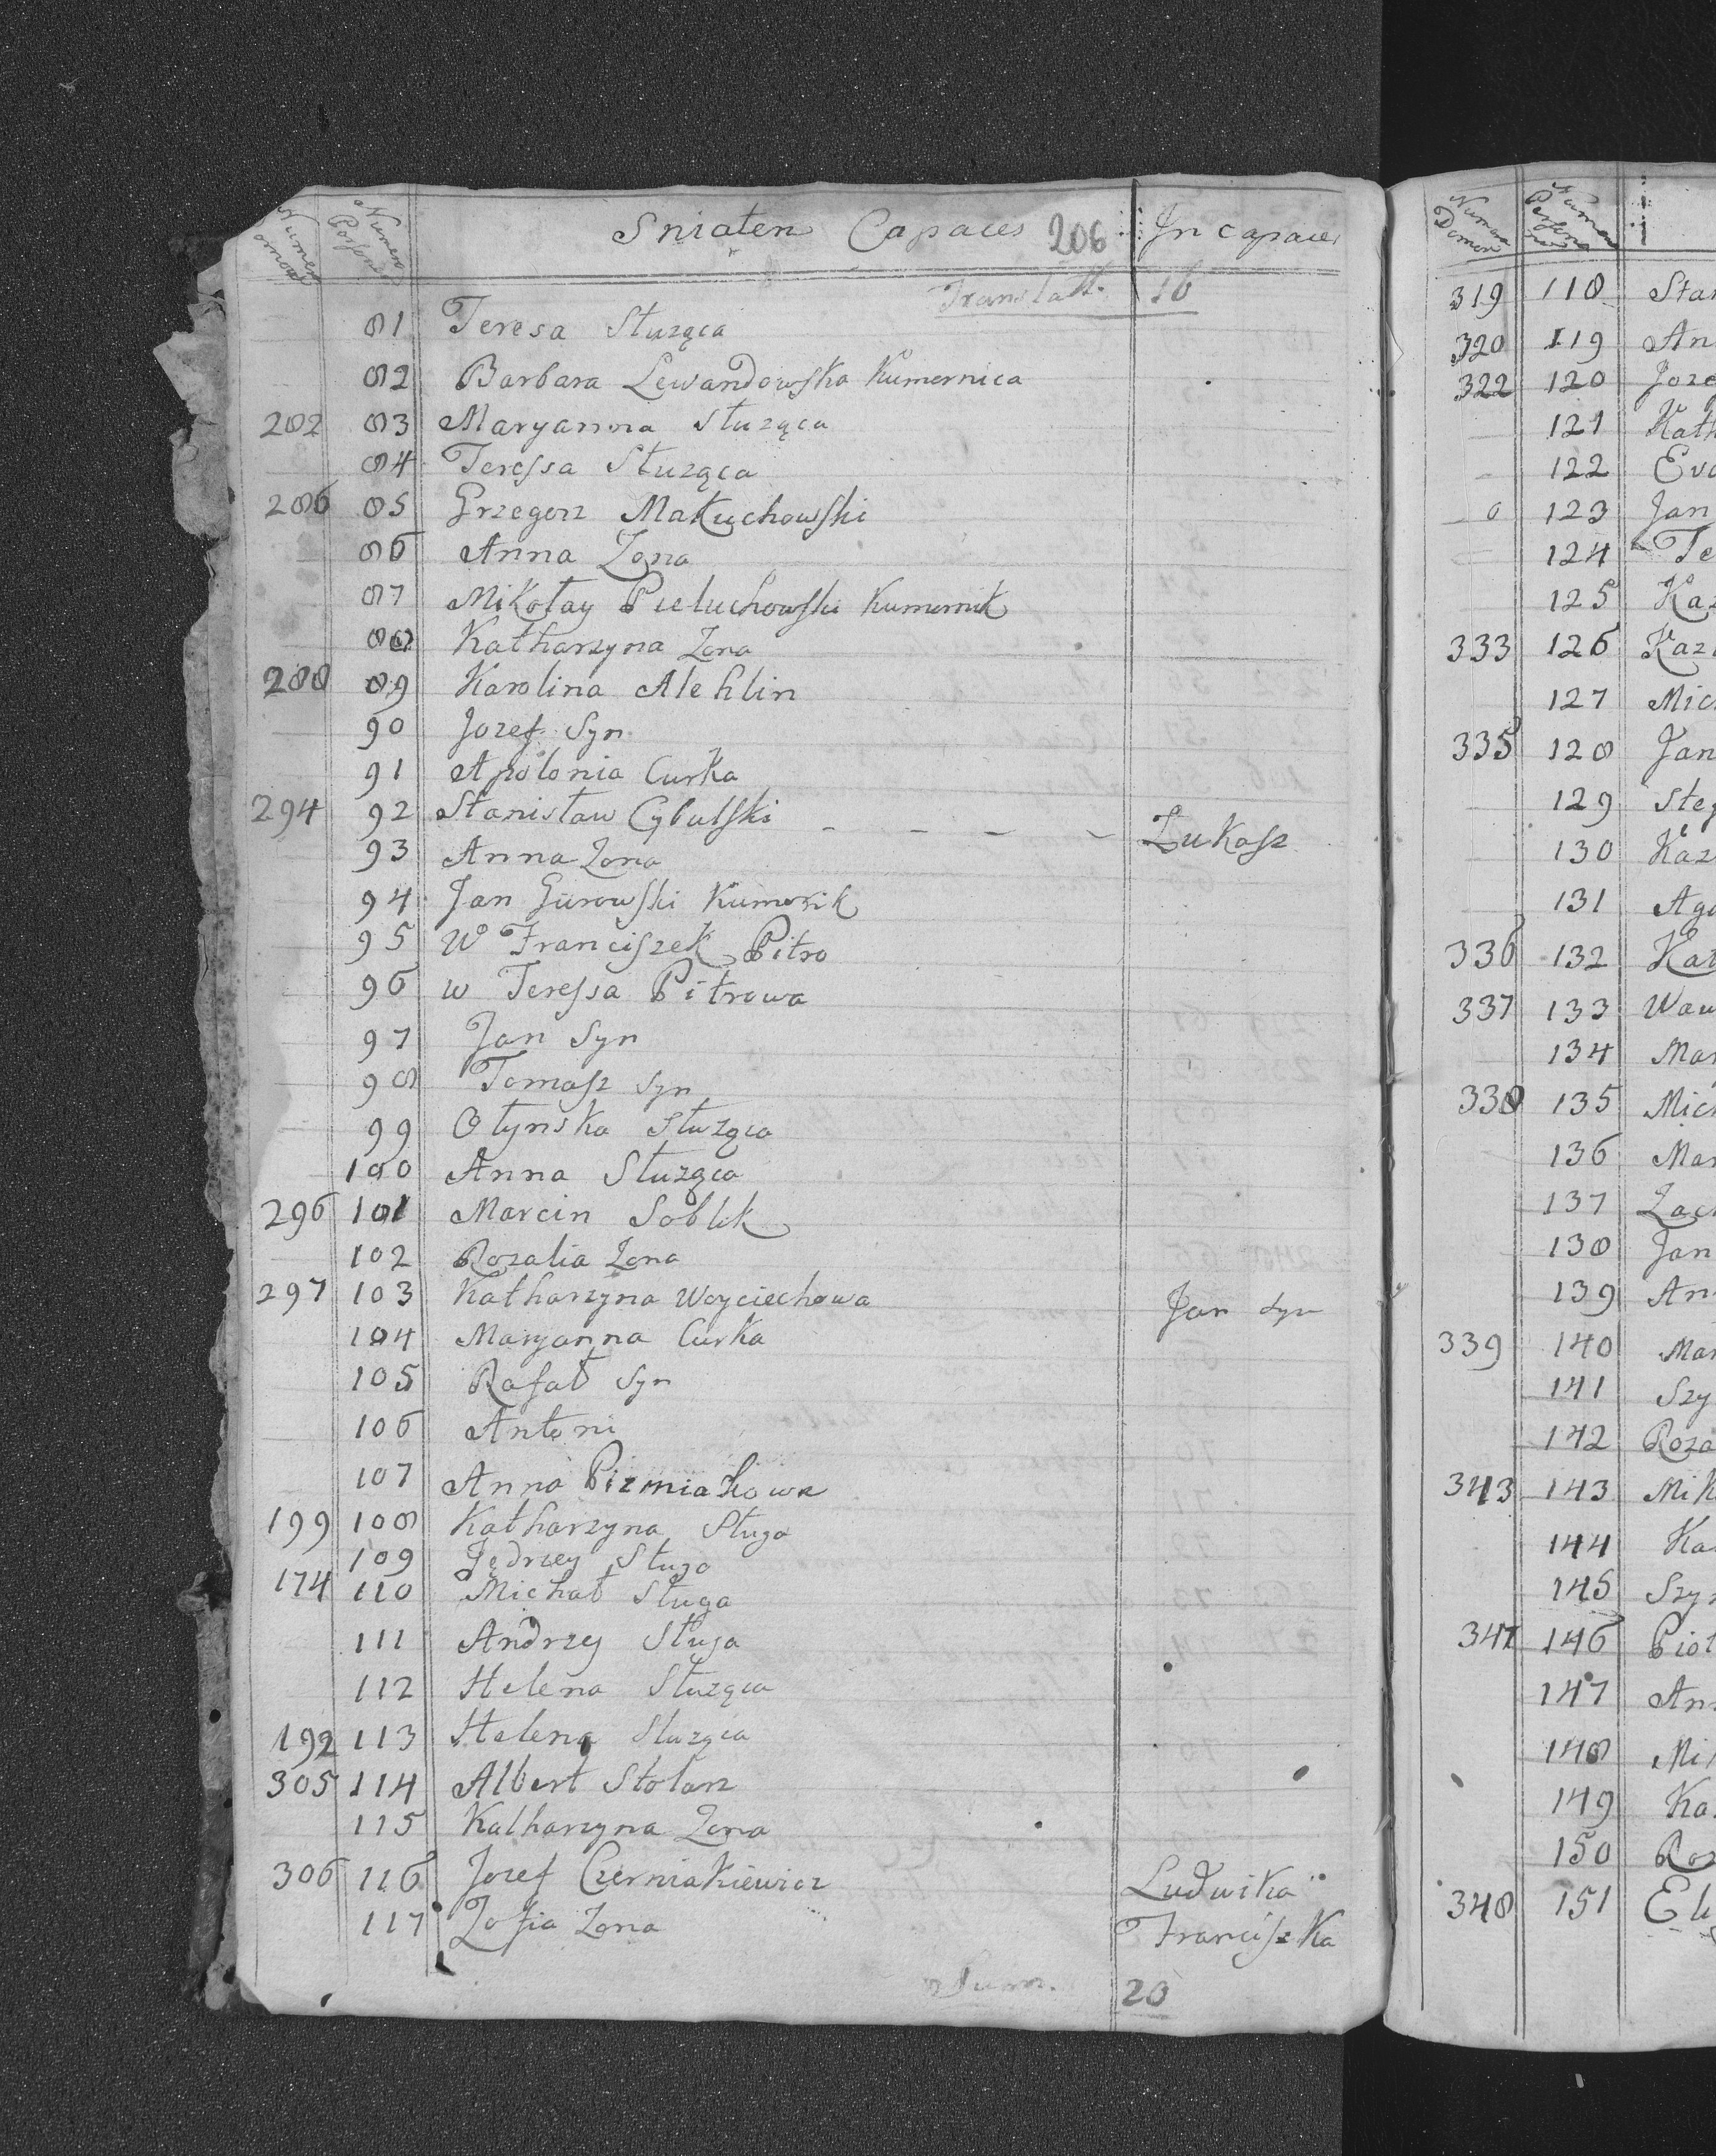 Numer Domor Numero Persone Sniaten Capaces 206 In capaces
Translatt. 16
81 Teresa Słuząca
82 Barbara Lewandowska Kumornica
282 83 Maryanna Słuząca
84 Teressa Słuząca
286 85 Grzegorz Makuchowski
86 Anna Zona
87 Mikołay Pieluchowski Kumornik
88 Katharzyna Zona
288 89 Karolina
90 Jozef Syn
91 Apolonia Curka
294 92 Stanisław Cybulski - - - - Łukasz
93 Anna Zona
94 Jan Gurowski Kumornik
95 W Franciszek Pitro
96 w Teressa Pitrowa
97 Jan Syn
98 Tomasz Syn
99 Otynska Słuząca
100 Anna Słuząca
296 101 Marcin Soblek
102 Rozalia Zona
297 103 Katharzyna Woyciechowa Jan Syn
104 Maryanna Curka
105 Rafał Syn
106 Antoni
107 Anna Pizmiakowa
199 108 Katharzyna Sługa
109 Jędrzey Sługa
174 110 Michał Sługa
111 Andrzey Sługa
112 Helena Słuząca
192 113 Helena Słuząca
305 114 Albert Stolarz
115 Katharzyna Zona
306 116 Jozef Czerniakiewicz Ludwika
117 Zofia Zona Franciszka
Sum. 20
Numer Domor Numer Persona
319 118 Sta
320 119 An
322 120 Joze
121 Kath
122 Eva
123 Jan
124 Te
125 Kaz
333 126 Kazi
127 Mic
335 128 Jan
129 Ste
130 Kaz
131 Aga
336 132 Kat
337 133 Waw
134 Mar
338 135 Mich
136 Mar
137 Zac
138 Jan
139 An
339 140 Mar
141 Szy
142 Roza
343 143 Mik
144 Ka
145 Szy
347 146 Piot
147 An
148 Mi
149 Ka
150 Roz
348 151 El